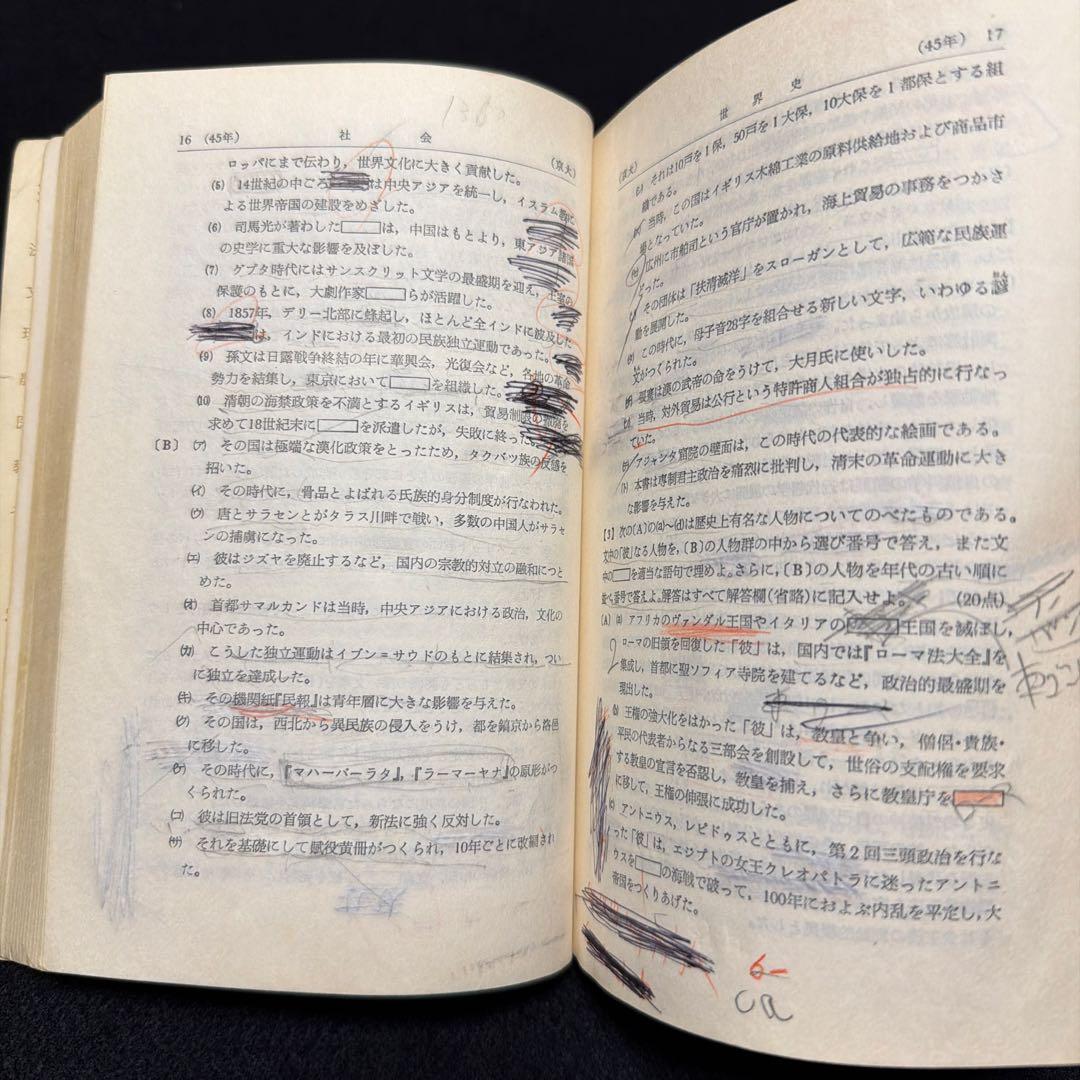 16 (45年) 社会 (京大)
ロッパにまで伝わり，世界文化に大きく貢献した。
(5) 14世紀の中ごろ は中央アジアを統一し，イスラム
よる世界帝国の建設をめざした。
(6) 司馬光が著わした□は，中国はもとより，東アジア諸国
の史学に重大な影響を及ぼした。
(7) グプタ時代にはサンスクリット文学の最盛期を迎え，王室の
保護のもとに，大劇作家□らが活躍した。
(8) 1857年，デリー北部に蜂起し，ほとんど全インドに波及した
は，インドにおける最初の民族独立運動であった。
(9) 孫文は日露戦争終結の年に華興会，光復会など，各地の革命
勢力を結集し，東京において□を組織した。
(10) 清朝の海禁政策を不満とするイギリスは，貿易制限の撤廃を
求めて18世紀末に□を派遣したが，失敗に終った。
〔B〕 (ア) その国は極端な漢化政策をとったため，タクバツ族の反感を
招いた。
(イ) その時代に，骨品とよばれる氏族的身分制度が行なわれた。
(ウ) 唐とサラセンとがタラス川畔で戦い，多数の中国人がサラセ
ンの捕虜になった。
(エ) 彼はジズヤを廃止するなど，国内の宗教的対立の融和につと
めた。
(オ) 首都サマルカンドは当時，中央アジアにおける政治，文化の
中心であった。
(カ) こうした独立運動はイブン＝サウドのもとに結集され，つい
に独立を達成した。
(キ) その機関紙『民報』は青年層に大きな影響を与えた。
(ク) その国は，西北から異民族の侵入をうけ，都を鎬京から洛邑
に移した。
(ケ) その時代に，『マハーバーラタ』，『ラーマーヤナ』の原形がつ
くられた。
(コ) 彼は旧法党の首領として，新法に強く反対した。
(サ) それを基礎にして賦役黄冊がつくられ，10年ごとに改編され
た。
世界史 (45年) 17
(京大)
それは10戸を1保，50戸を1大保，10大保を1都保とする組
織である。
当時，この国はイギリス木綿工業の原料供給地および商品市
場となっていた。
広州に市舶司という官庁が置かれ，海上貿易の事務をつかさ
どった。
その団体は「扶清滅洋」をスローガンとして，広範な民族運
動を展開した。
この時代に，母子音28字を組合せる新しい文字，いわゆる諺
文がつくられた。
張騫は漢の武帝の命をうけて，大月氏に使いした。
当時，対外貿易は公行という特許商人組合が独占的に行なっ
ていた。
アジャンタ窟院の壁面は，この時代の代表的な絵画である。
(ト) 本書は専制君主政治を痛烈に批判し，清末の革命運動に大き
な影響を与えた。
【3】 次の(A)の(a)～(d)は歴史上有名な人物についてのべたものである。
文中の「彼」なる人物を，〔B〕の人物群の中から選び番号で答え，また文
中の□を適当な語句で埋めよ。さらに，〔B〕の人物を年代の古い順に
並べ，番号で答えよ。解答はすべて解答欄(省略)に記入せよ。 (20点)
〔A〕 (a) アフリカのヴァンダル王国やイタリアの□王国を滅ぼし，
2 ローマの旧領を回復した「彼」は，国内では『ローマ法大全』を
集成し，首都に聖ソフィア寺院を建てるなど，政治的最盛期を
現出した。
(b) 王権の強大化をはかった「彼」は，教皇と争い，僧侶・貴族・
平民の代表者からなる三部会を創設して，世俗の支配権を要求
する教皇の宣言を否認し，教皇を捕え，さらに教皇庁を□
に移して，王権の伸張に成功した。
(c) アントニウス，レピドゥスとともに，第2回三頭政治を行な
った「彼」は，エジプトの女王クレオパトラに迷ったアントニ
ウスを□の海戦で破って，100年におよぶ内乱を平定し，大
帝国をつくりあげた。